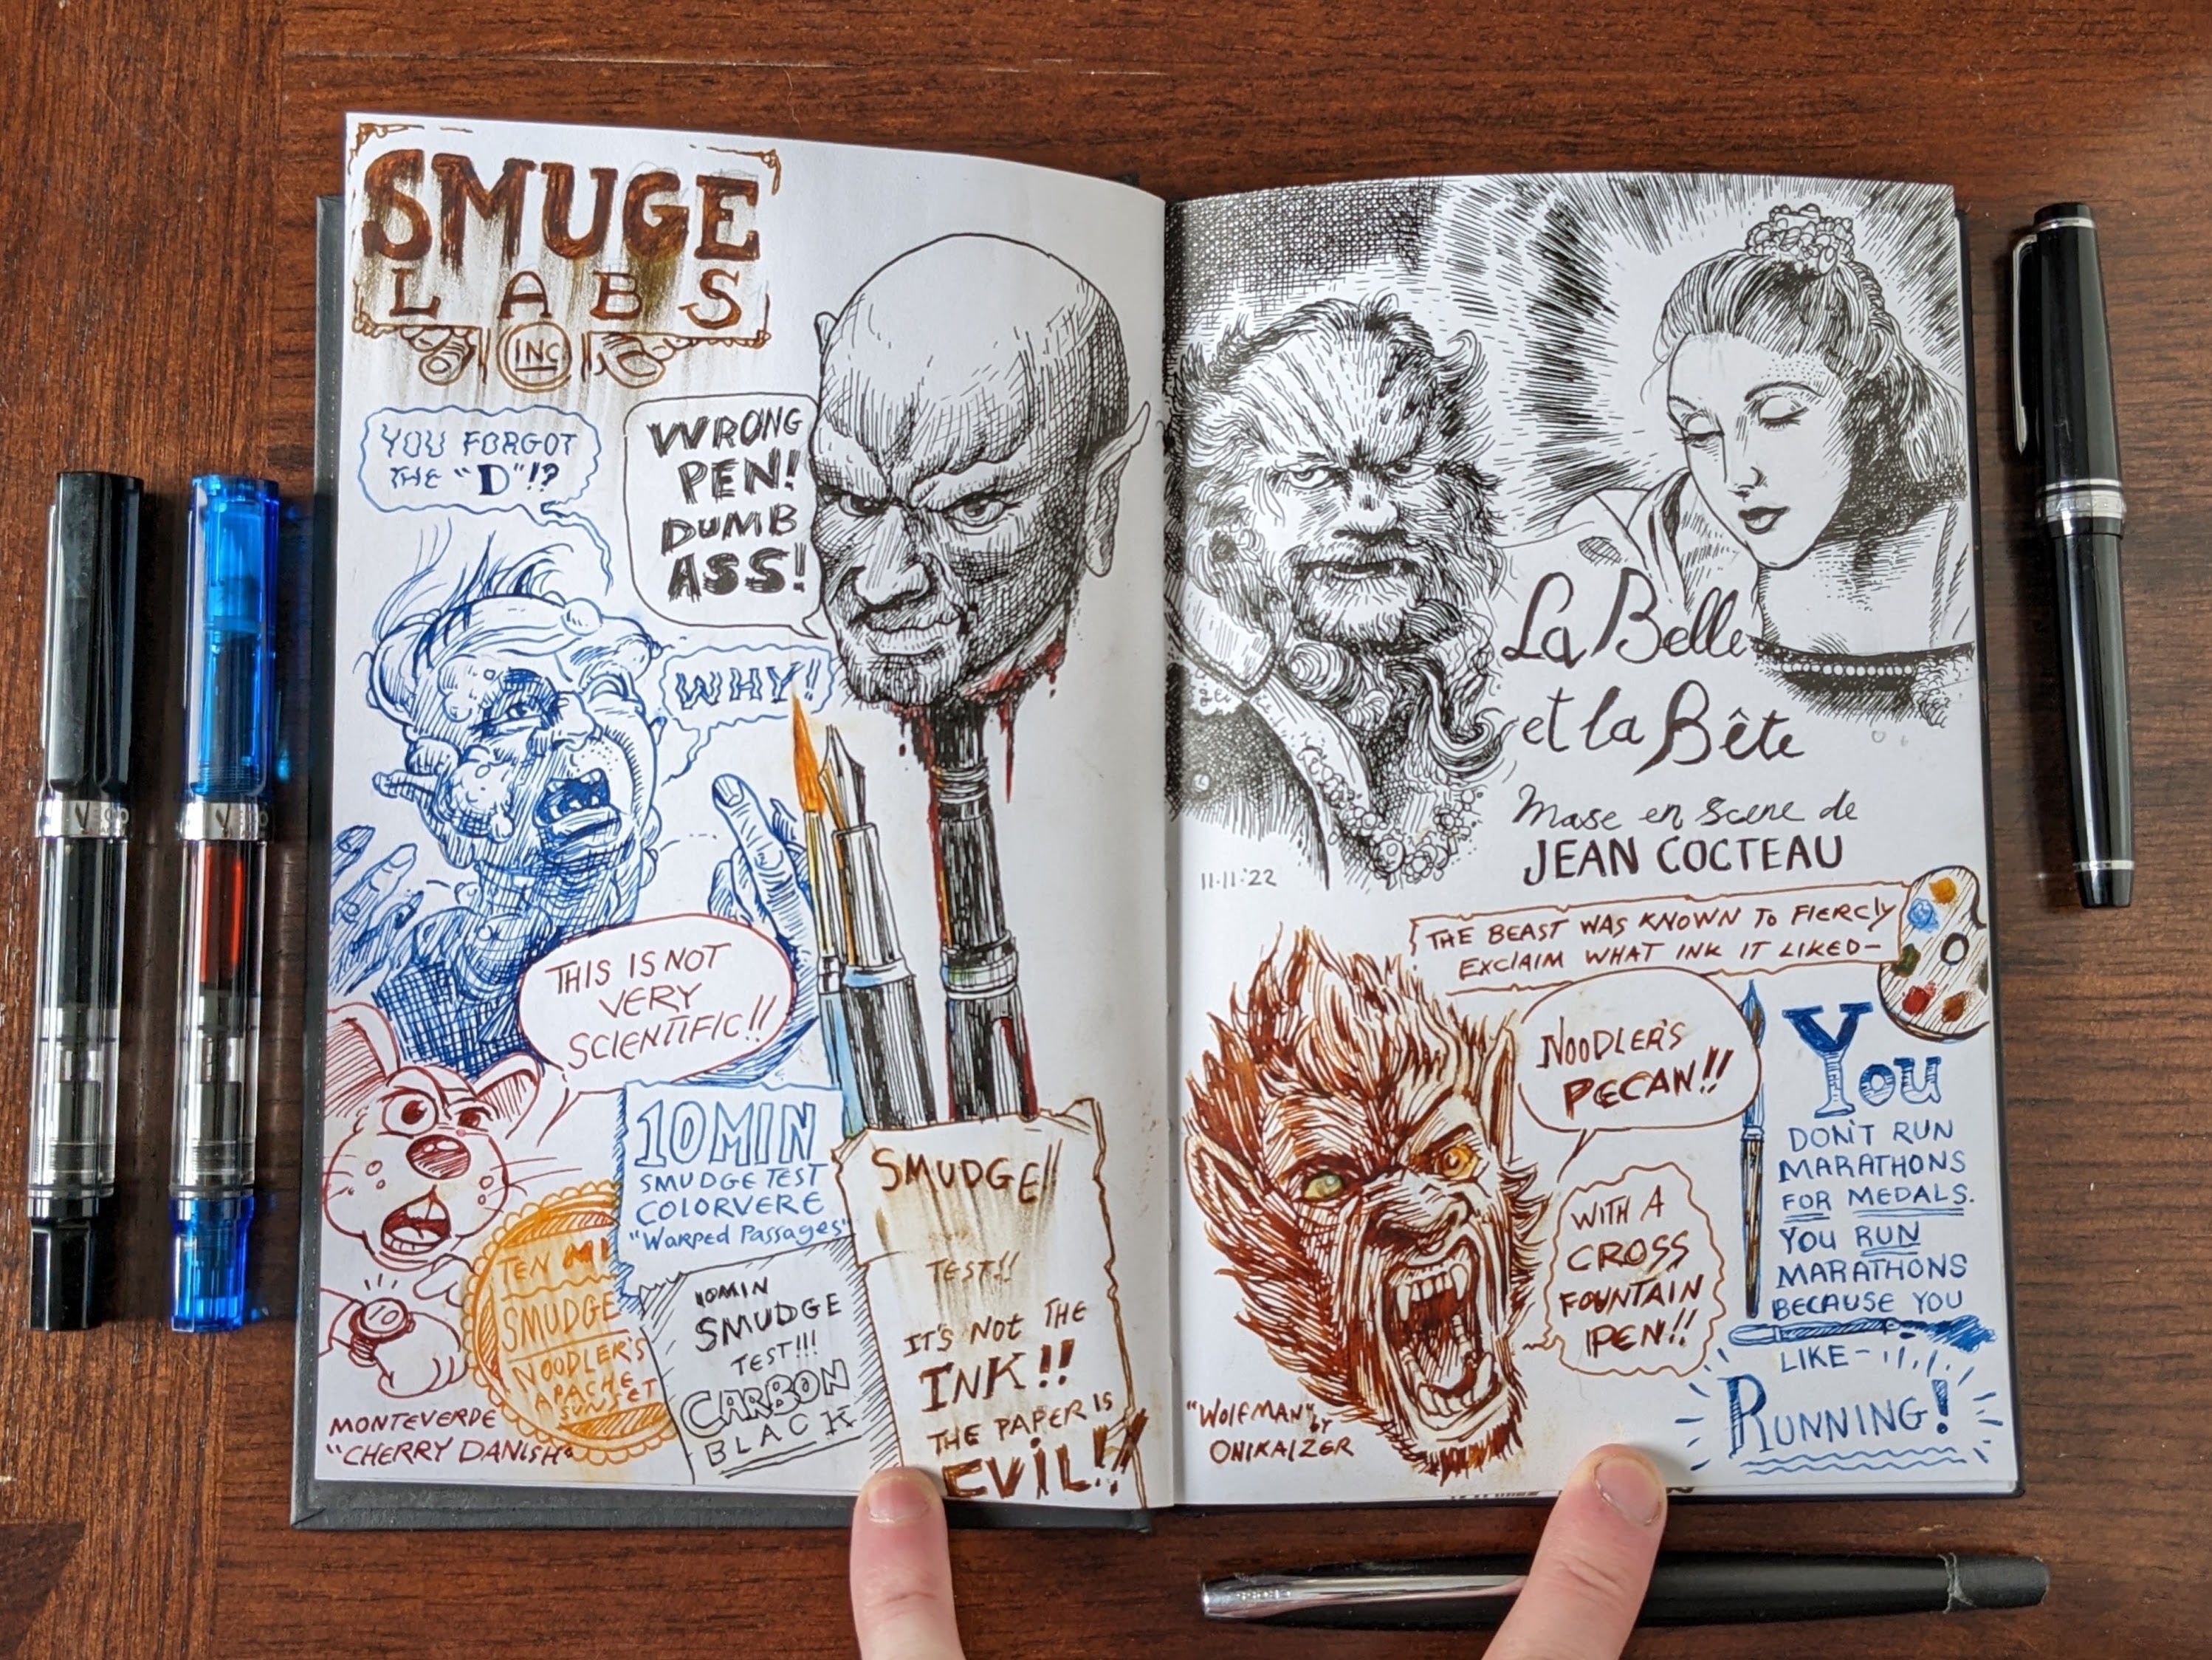 SMUGE
LABS
INC.
YOU FORGOT
THE "D"!?
WRONG
PEN!
DUMB
ASS!
WHY!
THIS IS NOT
VERY
SCIENTIFIC!!
10MIN
SMUDGE TEST
COLORVERE
"Warped Passages"
TEN MI
SMUDGE
NOODLER'S
APACHE
SUNSET
10MIN
SMUDGE
TEST!!!
CARBON
BLACK
SMUDGE!!
TEST!!
IT'S NOT THE
INK!!
THE PAPER IS
EVIL!!
MONTEVERDE
"CHERRY DANISH"
La Belle
et la Bête
Mase en Scene de
JEAN COCTEAU
11·11·'22
THE BEAST WAS KNOWN TO FIERCLY
EXCLAIM WHAT INK IT LIKED—
NOODLER'S
PECAN!!
WITH A
CROSS
FOUNTAIN
PEN!!
"WOLFMAN" BY
ONIKAIZER
YOU
DON'T RUN
MARATHONS
FOR MEDALS.
YOU RUN
MARATHONS
BECAUSE YOU
LIKE-
RUNNING!